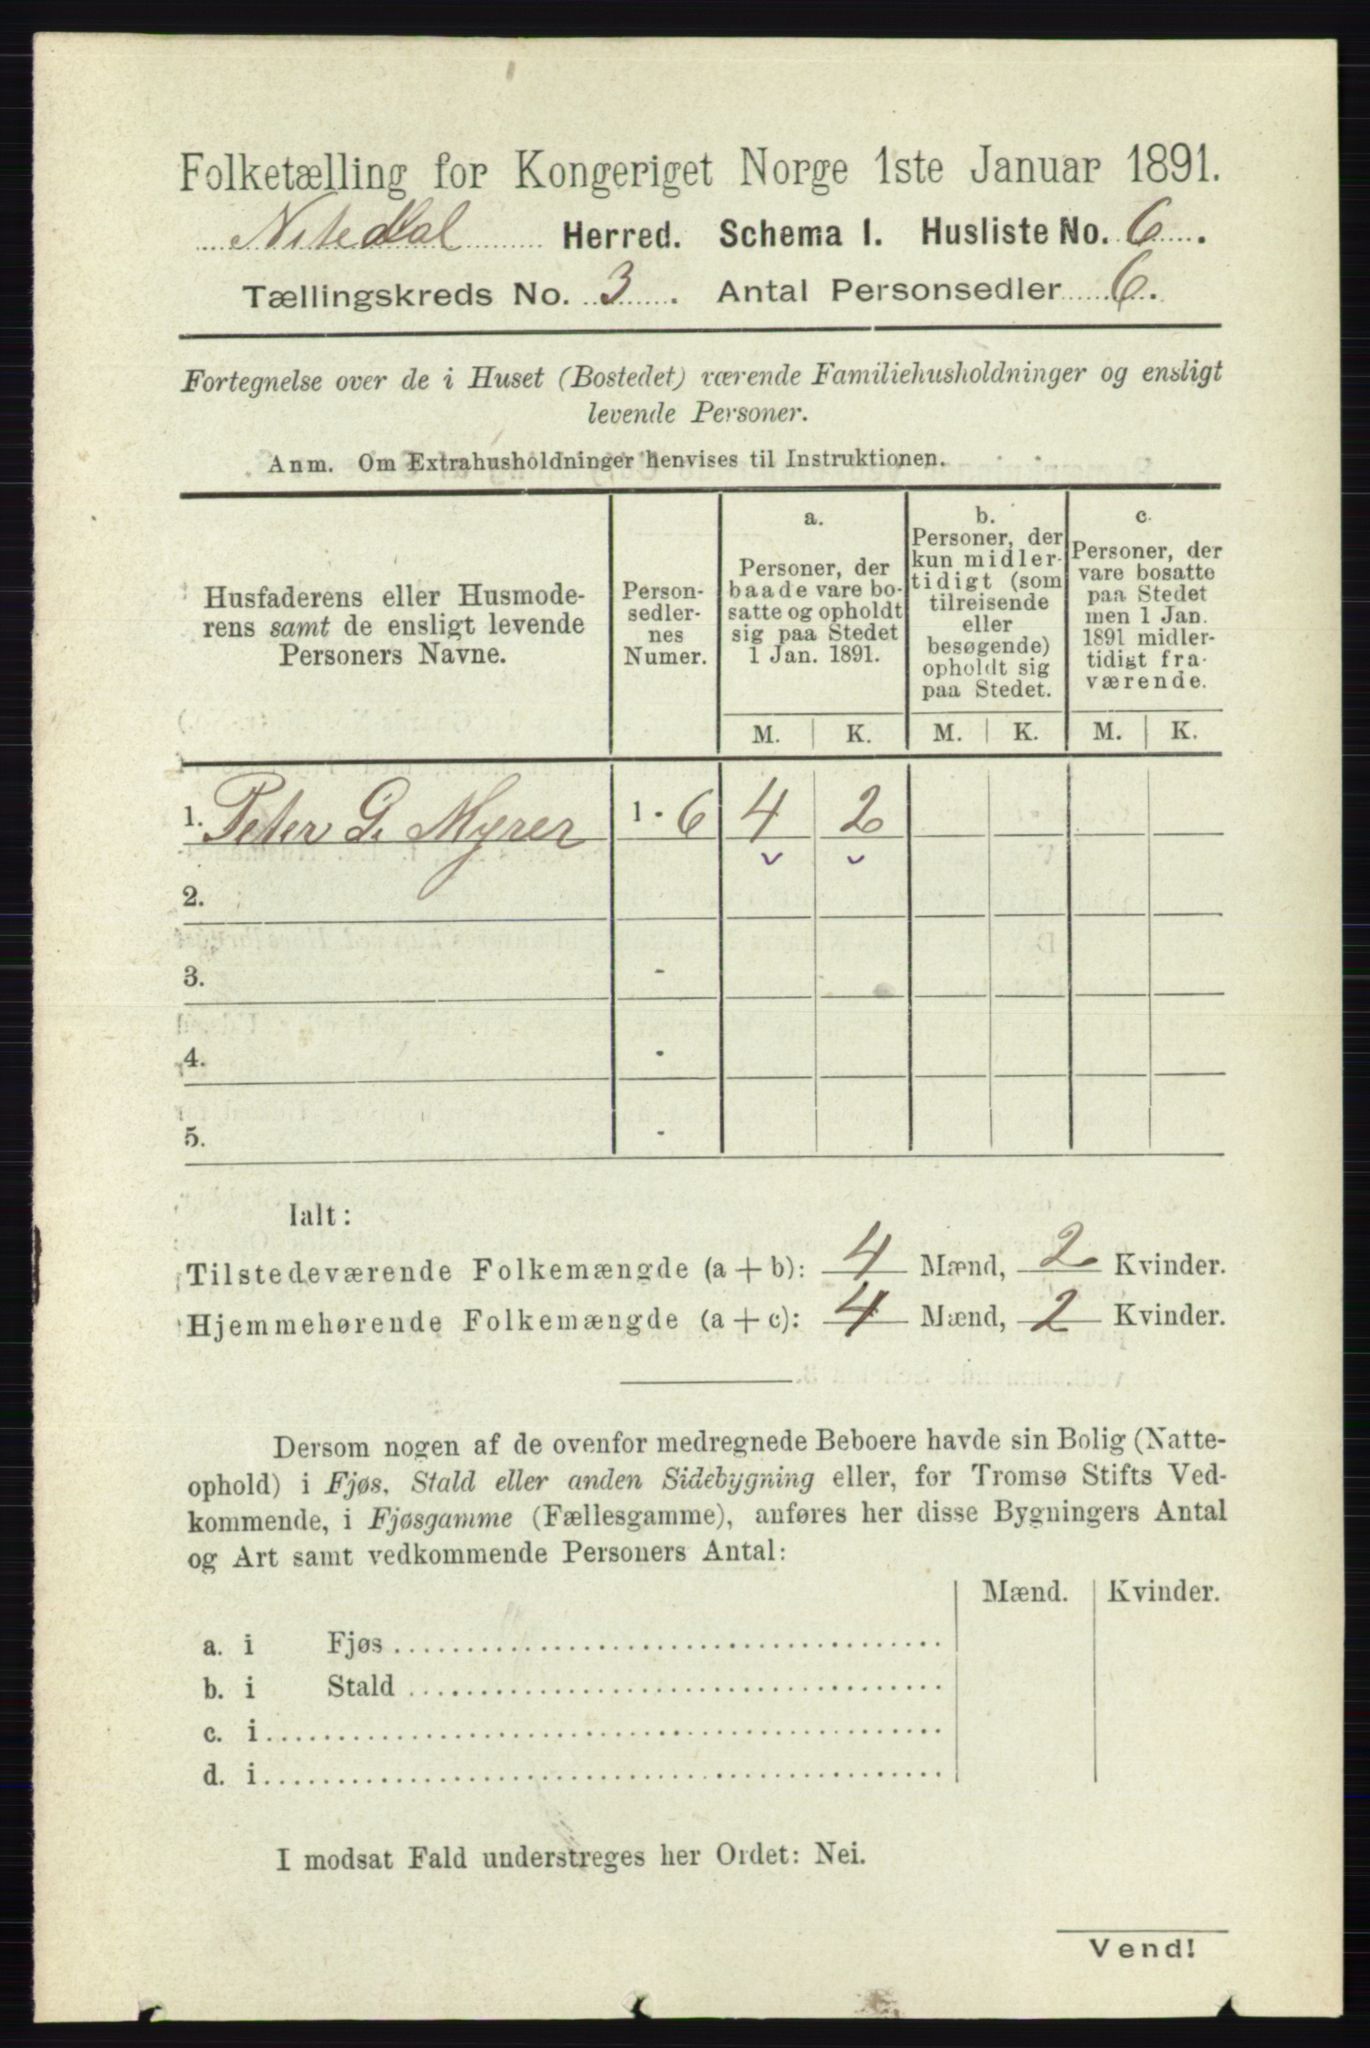 Folketælling for Kongeriget Norge 1ste Januar 1891.
Nitedal Herred. Schema 1. Husliste No. 6.
Tællingskreds No. 3. Antal Personsedler 6.
Fortegnelse over de i Huset (Bostedet) værende Familiehusholdninger og ensligt
levende Personer.
Anm. Om Extrahusholdninger henvises til Instruktionen.
Husfaderens eller Husmode-
rens samt de ensligt levende
Personers Navne.
Person-
sedler-
nes
Numer.
a.
Personer, der
baade vare bo-
satte og opholdt
sig paa Stedet
1 Jan. 1891.
b.
Personer, der
kun midler-
tidigt (som
tilreisende
eller
besøgende)
opholdt sig
paa Stedet.
c.
Personer, der
vare bosatte
paa Stedet
men 1 Jan.
1891 midler-
tidigt fra-
værende.
M. K. M. K. M. K.
1. Peter G. Myrer 1 - 6 4 2
2.
3. -
4. -
5. -
Ialt:
Tilstedeværende Folkemængde (a + b): 4 Mænd, 2 Kvinder.
Hjemmehørende Folkemængde (a + c): 4 Mænd, 2 Kvinder.
Dersom nogen af de ovenfor medregnede Beboere havde sin Bolig (Natte-
ophold) i Fjøs, Stald eller anden Sidebygning eller, for Tromsø Stifts Ved-
kommende, i Fjøsgamme (Fællesgamme), anføres her disse Bygningers Antal
og Art samt vedkommende Personers Antal:
Mænd. Kvinder.
a. i Fjøs
b. i Stald
c. i
d. i
I modsat Fald understreges her Ordet: Nei.
Vend!